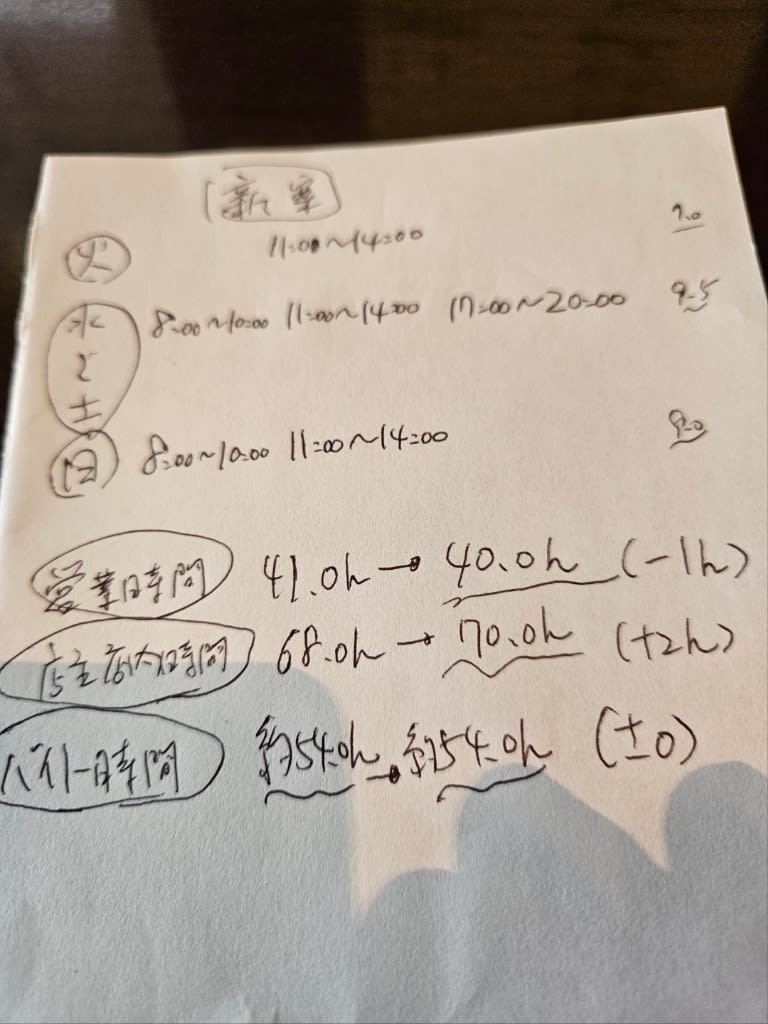 新案
火 11:00〜14:00 9.0
水 8:00〜10:00 11:00〜14:00 17:00〜20:00 9.5
〜
土
日 8:00〜10:00 11:00〜14:00 9.0
営業時間 41.0h → 40.0h (-1h)
店主 時間 68.0h → 70.0h (+2h)
バイト時間 約54.0h → 約54.0h (±0)